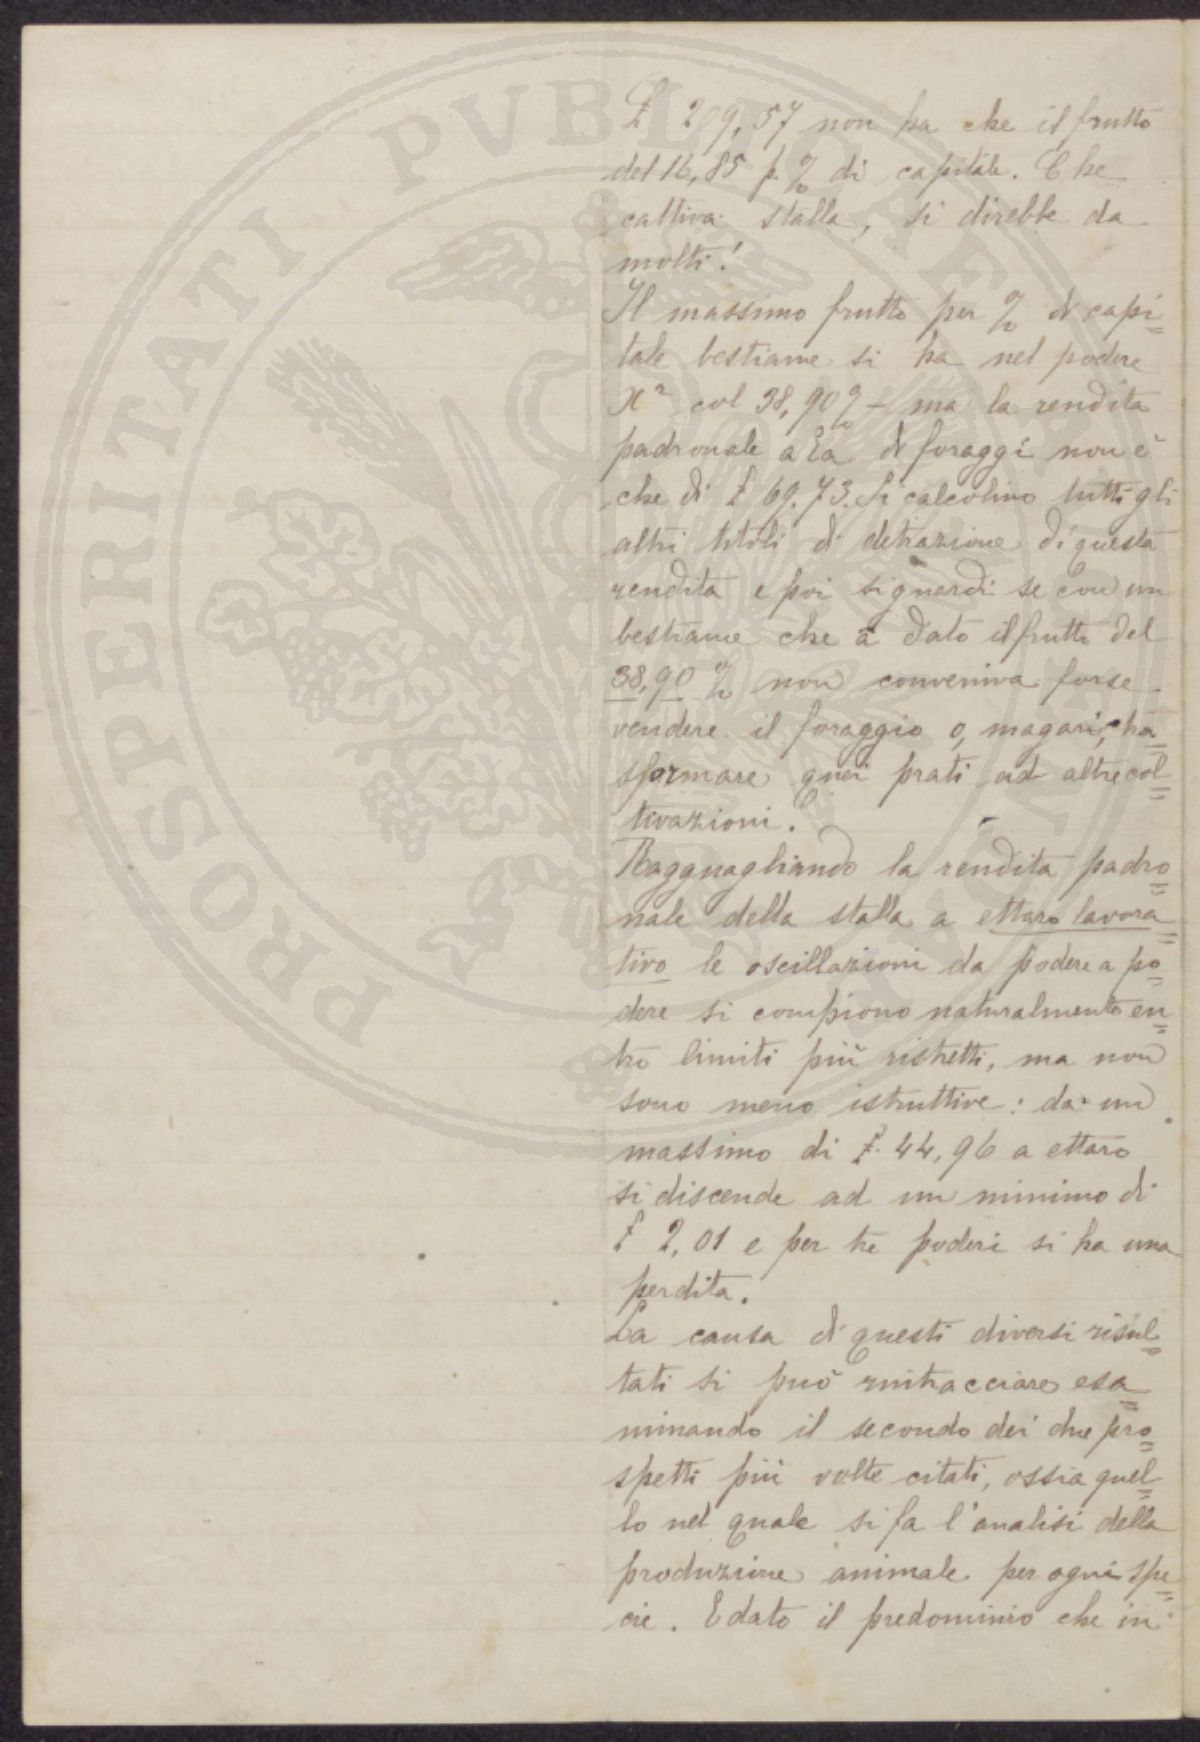 £ 209,57 non ha che il frutto
del 16,85 p. % di capitale. Che
cattiva stalla, si direbbe da
molti!
Il massimo frutto per % di capi=
tale bestiame si ha nel podere
col 38,90 % – ma la rendita
padronale a Ea di foraggi non è
che di £ 69.73. Si calcolino tutti gli
altri titoli di detrazione di questa
rendita e poi si guardi se con un
bestiame che à dato il frutto del
38,90 % non conveniva forse
vendere il foraggio o, magari, tra=
sformare quei prati ad altre col=
tivazioni.
Ragguagliando la rendita padro=
nale della stalla a ettaro lavora=
tivo le oscillazioni da podere a po=
dere si compiono naturalmente en=
tro limiti più ristretti, ma non
sono meno istruttive: da un
massimo di £. 44,96 a ettaro
si discende ad un minimo di
£ 2,01 e per tre poderi si ha una
perdita.
La causa di questi diversi risul=
tati si può rintracciare esa=
minando il secondo dei due pro=
spetti più volte citati, ossia quel=
lo nel quale si fa l'analisi della
produzione animale per ogni spe=
cie. E dato il predominio che in
PROSPERITATI PVBLICAE